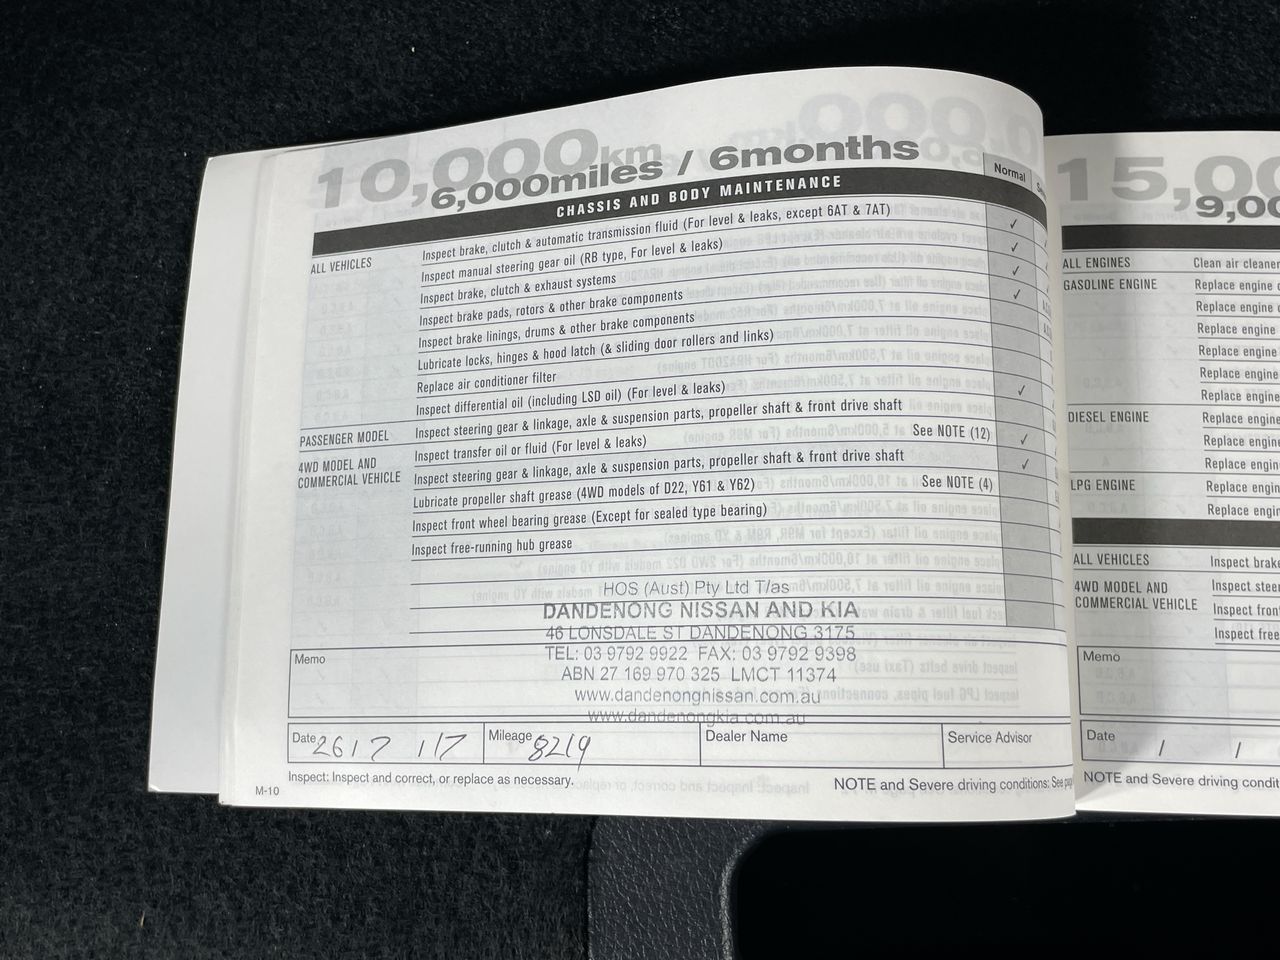 10,000km
6,000miles / 6months
CHASSIS AND BODY MAINTENANCE
Normal
ALL VEHICLES
Inspect brake, clutch & automatic transmission fluid (For level & leaks, except 6AT & 7AT) ✓
Inspect manual steering gear oil (RB type, For level & leaks) ✓
Inspect brake, clutch & exhaust systems ✓
Inspect brake pads, rotors & other brake components ✓
Inspect brake linings, drums & other brake components
Lubricate locks, hinges & hood latch (& sliding door rollers and links)
Replace air conditioner filter
Inspect differential oil (including LSD oil) (For level & leaks) ✓
PASSENGER MODEL
Inspect steering gear & linkage, axle & suspension parts, propeller shaft & front drive shaft
4WD MODEL AND
COMMERCIAL VEHICLE
Inspect transfer oil or fluid (For level & leaks) See NOTE (12) ✓
Inspect steering gear & linkage, axle & suspension parts, propeller shaft & front drive shaft ✓
Lubricate propeller shaft grease (4WD models of D22, Y61 & Y62) See NOTE (4)
Inspect front wheel bearing grease (Except for sealed type bearing)
Inspect free-running hub grease
HOS (Aust) Pty Ltd T/as
DANDENONG NISSAN AND KIA
46 LONSDALE ST DANDENONG 3175
TEL: 03 9792 9922 FAX: 03 9792 9398
ABN 27 169 970 325 LMCT 11374
www.dandenongnissan.com.au
www.dandenongkia.com.au
Memo
Date 26/7/17
Mileage 8219
Dealer Name
Service Advisor
Inspect: Inspect and correct, or replace as necessary.
NOTE and Severe driving conditions: See
M-10
15,00
9,00
ALL ENGINES
Clean air cleaner
GASOLINE ENGINE
Replace engine
Replace engine
Replace engine
Replace engine
Replace engine
Replace engine
DIESEL ENGINE
Replace engine
Replace engine
Replace engine
LPG ENGINE
Replace engin
Replace engin
ALL VEHICLES
Inspect brake
4WD MODEL AND
COMMERCIAL VEHICLE
Inspect stee
Inspect fron
Inspect free
Memo
Date / /
NOTE and Severe driving condit